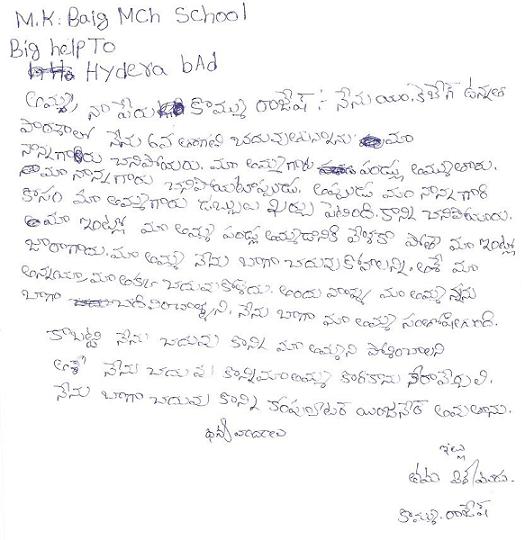 M.K. Baig Mch School
Big help To
Hydera bAd
అమ్మ, నా పేరు కొమ్ము రాజేష్ :- నేను యం.కె బేగ్ ఉన్నత
పాఠశాలో నేను 6వ తరగతి చదువుతున్నాను మా
నాన్నగారు చనిపోయరు. మా అమ్మగారు పండ్లు అమ్ముతారు.
మా నాన్నగారు చనిపోయేటప్పుడు, అప్పుడు మా నాన్నగారి
కోసం మా అమ్మగారు డబ్బులు ఖర్చు పెటింది. కాని చనిపోయారు.
మా ఇంట్లో మా అమ్మ పండ్లు అమ్మడానికి వెళ్లక పోతే మా ఇంట్లో
జరాగాదు. మా అమ్మ నేను బాగా చదువుకోవాలన్ని. ఆశే మా
అన్నయా, మా అకా చదువుకోలేదు. అందు వాల్ల మా అమ్మ నేను
బాగా చదివించాల్నని. నేను బాగా మా అమ్మ
కాబట్టి నేను చదువు కొన్ని మా అమ్మని పోషించాలని
ఆశే నేను చదువు కొన్ని మా అమ్మ కొరకాను నేరావేర్చాలి.
నేను బాగా చదువు కొన్ని కంప్యూటర్ యింజనీర్ అవుతాను.
ధన్యవాదాలు
ఇట్లు
తమ
కొమ్ము. రాజేష్